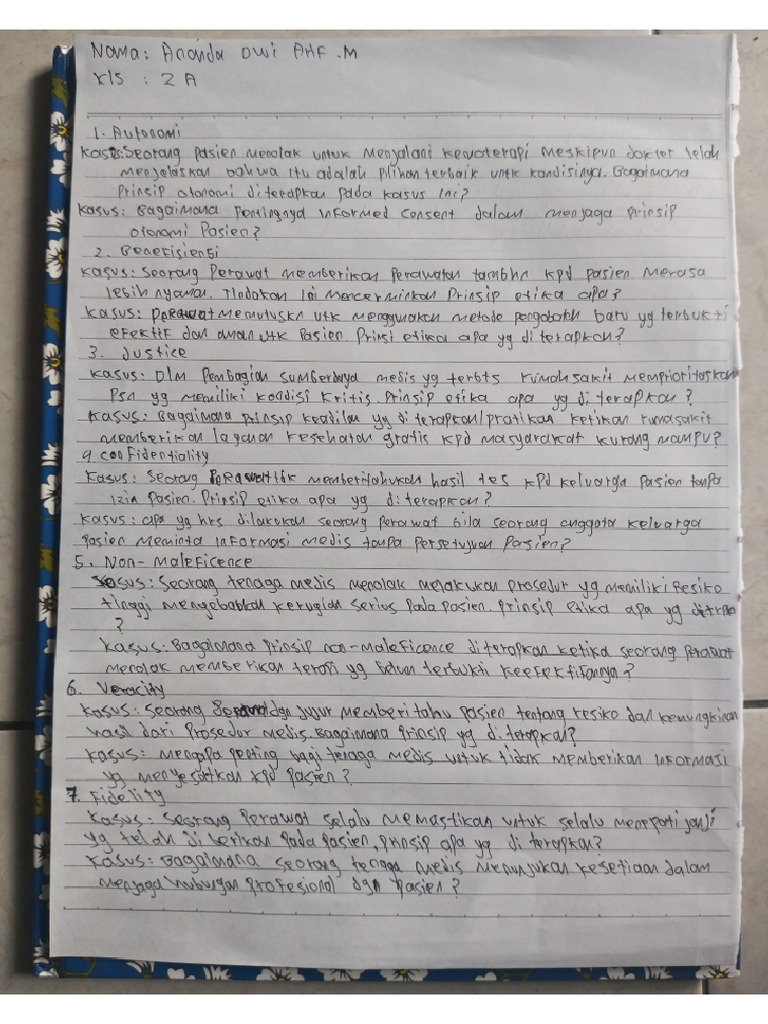 Nama: Ananda Dwi AHF .M
Kls : 2 A
1. Autonomi
Kasus: Seorang pasien menolak untuk menjalani kewoterapi meskipun dokter telah
menjelaskan bahwa itu adalah pilihan terbaik untk kondisinya. Bagaimana
Prinsip otonomi diterapkan pada kasus ini?
Kasus: Bagaimana pentingnya informed consent dalam menjaga prinsip
otonomi Pasien?
2. Benefisiensi
Kasus: Seorang Perawat memberikan perawatan tambhn kpd pasien merasa
lebih nyaman. Tindakan ini mencerminkan Prinsip etika apa?
Kasus: Perawat memutuskn utk menggunakan metode pengobatan baru yg terbukti
efektif dan aman utk Pasien. Prinsi etika apa yg diterapkan?
3. Justice
Kasus: Dlm Pembagian sumberdaya medis yg terbts rumah sakit memprioritaskan
Psn yg memiliki kondisi kritis. Prinsip etika apa yg diterapkan?
Kasus: Bagaimana prinsip keadilan yg diterapkan/pratikan ketikan rumasakit
memberikan layanan kesehatan gratis kpd masyarakat kurang mampu?
4. Confidentiality
Kasus: Seorang Perawat memberitahukan hasil tes kpd keluarga pasien tanpa
izin pasien. Prinsip etika apa yg diterapkan?
Kasus: apa yg hrs dilakukan seorang perawat bila seorang anggota keluarga
pasien meminta informasi medis tanpa persetujuan pasien?
5. Non-Maleficence
Kasus: Seorang tenaga medis menolak melakukan prosedur yg memiliki resiko
tinggi mengebabkan kerugian serius pada pasien. prinsip etika apa yg
?
Kasus: Bagaimana prinsip non-maleficence diterapkan ketika seorang perawat
menolak memberikan terapi yg belum terbukti keefektifannya?
6. Veracity
Kasus: Seorang dgn jujur memberitahu pasien tentang resiko dan kemungkinan
hasil dari prosedur medis. Bagaimana prinsip yg diterapkan?
Kasus: mengapa penting bagi tenaga medis untuk tidak memberikan informasi
yg menyesatkan kpd pasien?
7. Fidelity
Kasus: Seorang Perawat selalu memastikan untuk selalu menepati janji
yg telah diberikan pada pasien, prinsip apa yg diterapkan?
Kasus: Bagaimana seorang tenaga medis menunjukan kesetiaan dalam
menjaga hubungan profesional dgn pasien?